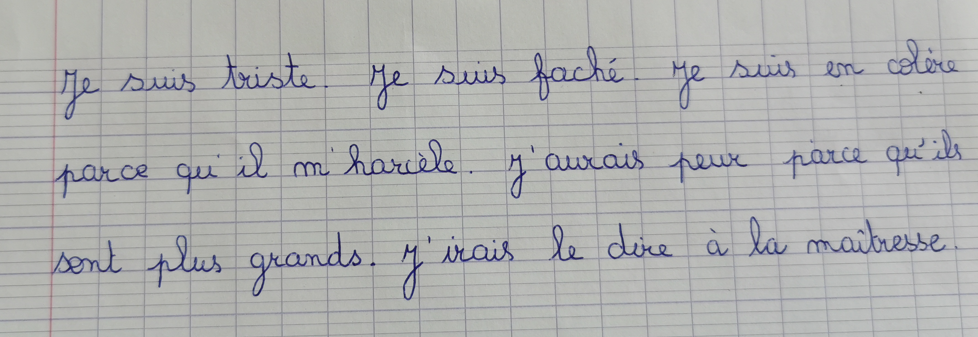 Je suis triste. Je suis faché. Je suis en colère
parce qu'il m'harcèle. J'aurais peur parce qu'ils
sont plus grands. J'irais le dire à la maîtresse.